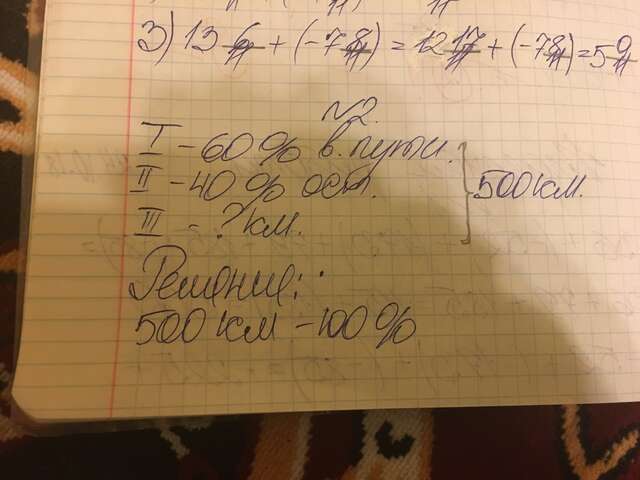 3) 13 6/11 + (-7 8/11) = 12 17/11 + (-7 8/11) = 5 9/11
№2.
I - 60% в. пути.
II - 40% ост.
III - ? км.
500 км.
Решение:
500 км - 100%